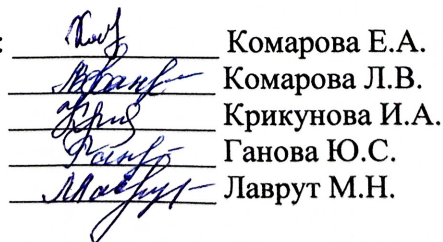 : Комарова Е.А.
Комарова Л.В.
Крикунова И.А.
Ганова Ю.С.
Лаврут М.Н.